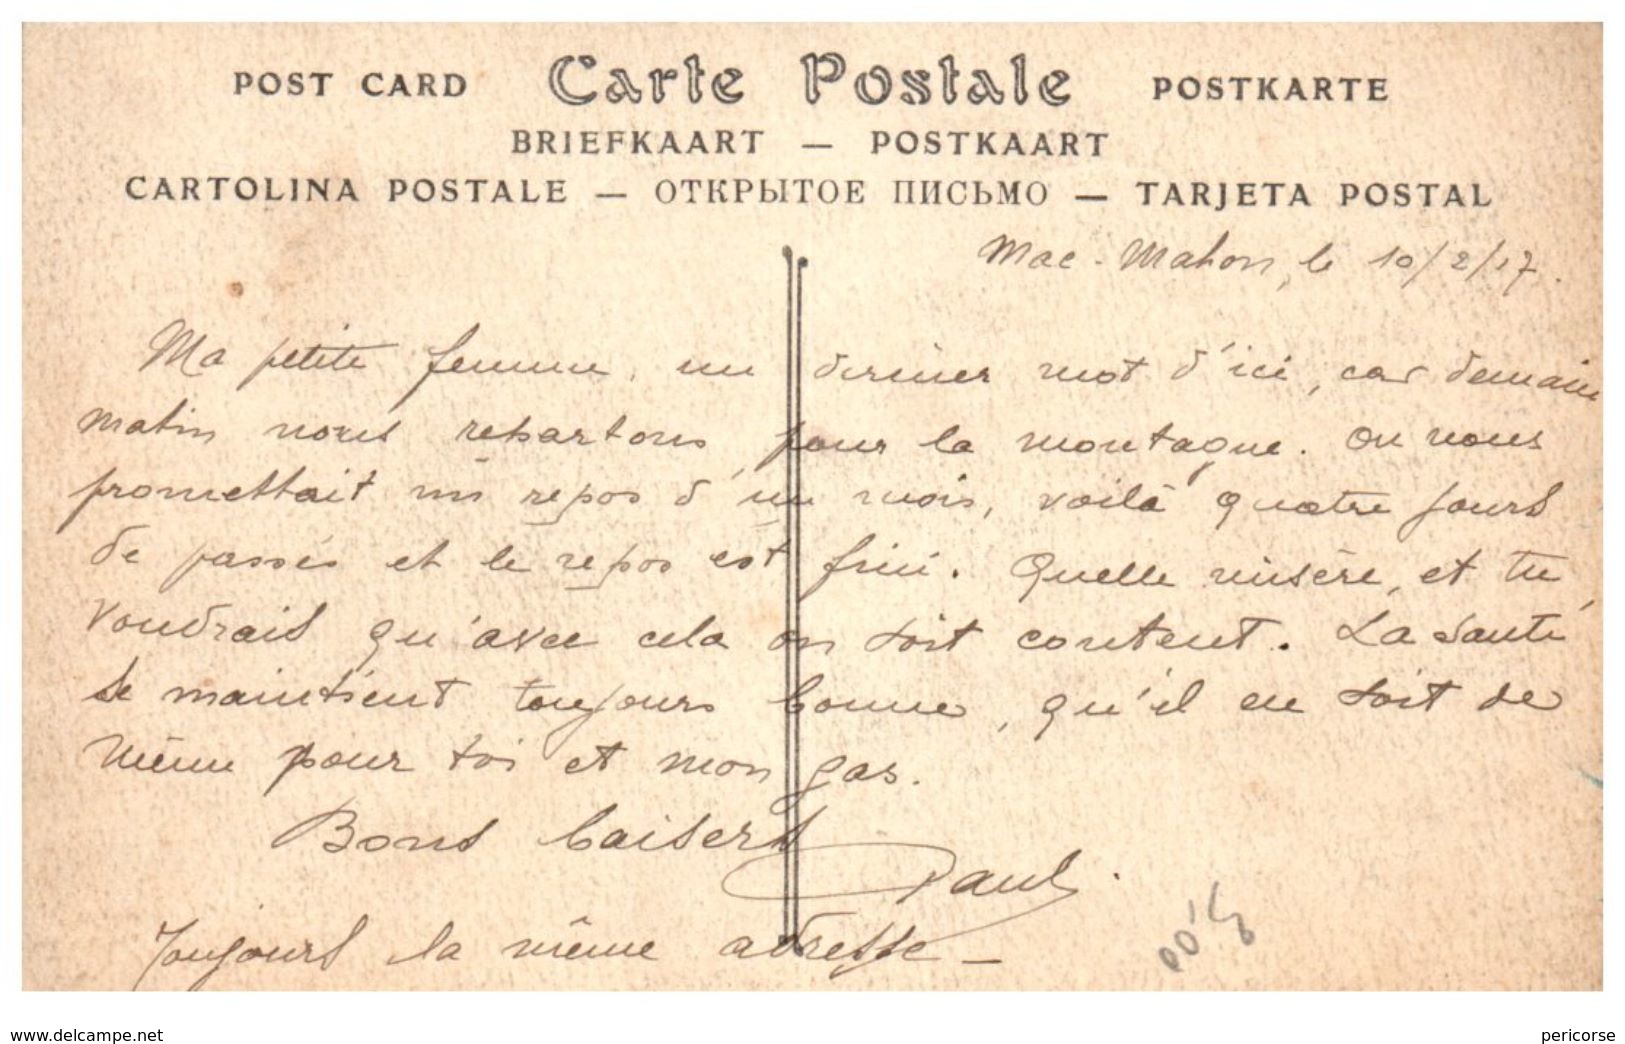 POST CARD Carte Postale POSTKARTE
BRIEFKAART — POSTKAART
CARTOLINA POSTALE — ОТКРЫТОЕ ПИСЬМО — TARJETA POSTAL
Mac-Mahon, le 10/2/17.
Ma petite femme, un dernier mot d'ici, car demain
matin nous repartons pour la montagne. On nous
promettait un repos d'un mois, voilà quatre jours
de passés et le repos est fini. Quelle misère, et tu
voudrais qu'avec cela on soit content. La santé
se maintient toujours bonne, qu'il en soit de
même pour toi et mon gas.
Bons baisers
Paul.
Toujours la même adresse —
www.delcampe.net
pericorse